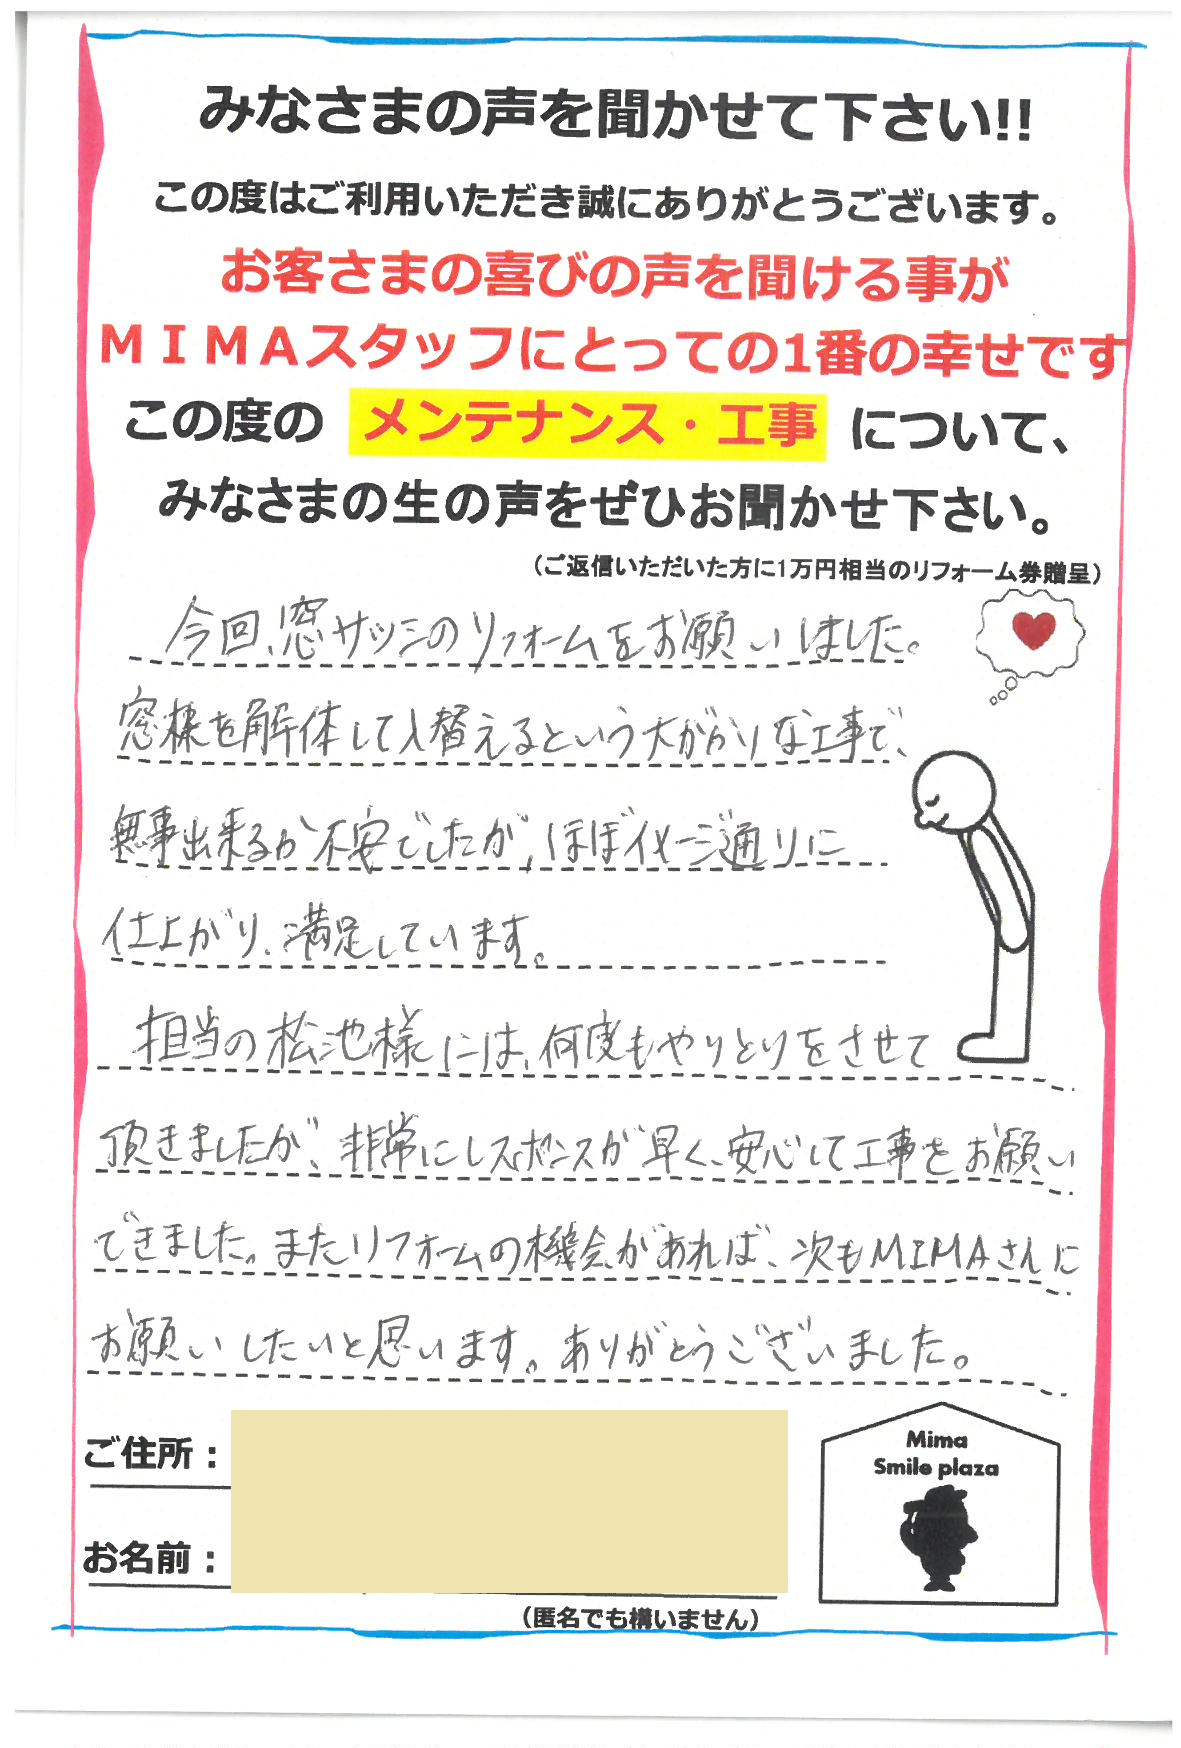 みなさまの声を聞かせて下さい!!
この度はご利用いただき誠にありがとうございます。
お客さまの喜びの声を聞ける事が
ＭＩＭＡスタッフにとっての1番の幸せです
この度の メンテナンス・工事 について、
みなさまの生の声をぜひお聞かせ下さい。
（ご返信いただいた方に1万円相当のリフォーム券贈呈）
今回、窓サッシのリフォームをお願いしました。
窓様を解体して入替えるという大がかりな工事で、
無事出来るか不安でしたが、ほぼイメージ通りに
仕上がり、満足しています。
担当の松池様には、何度もやりとりをさせて
頂きましたが、非常にレスポンスが早く、安心して工事をお願い
できました。またリフォームの機会があれば、次もMIMAさんに
お願いしたいと思います。ありがとうございました。
Mima
Smile plaza
ご住所：
お名前：
（匿名でも構いません）